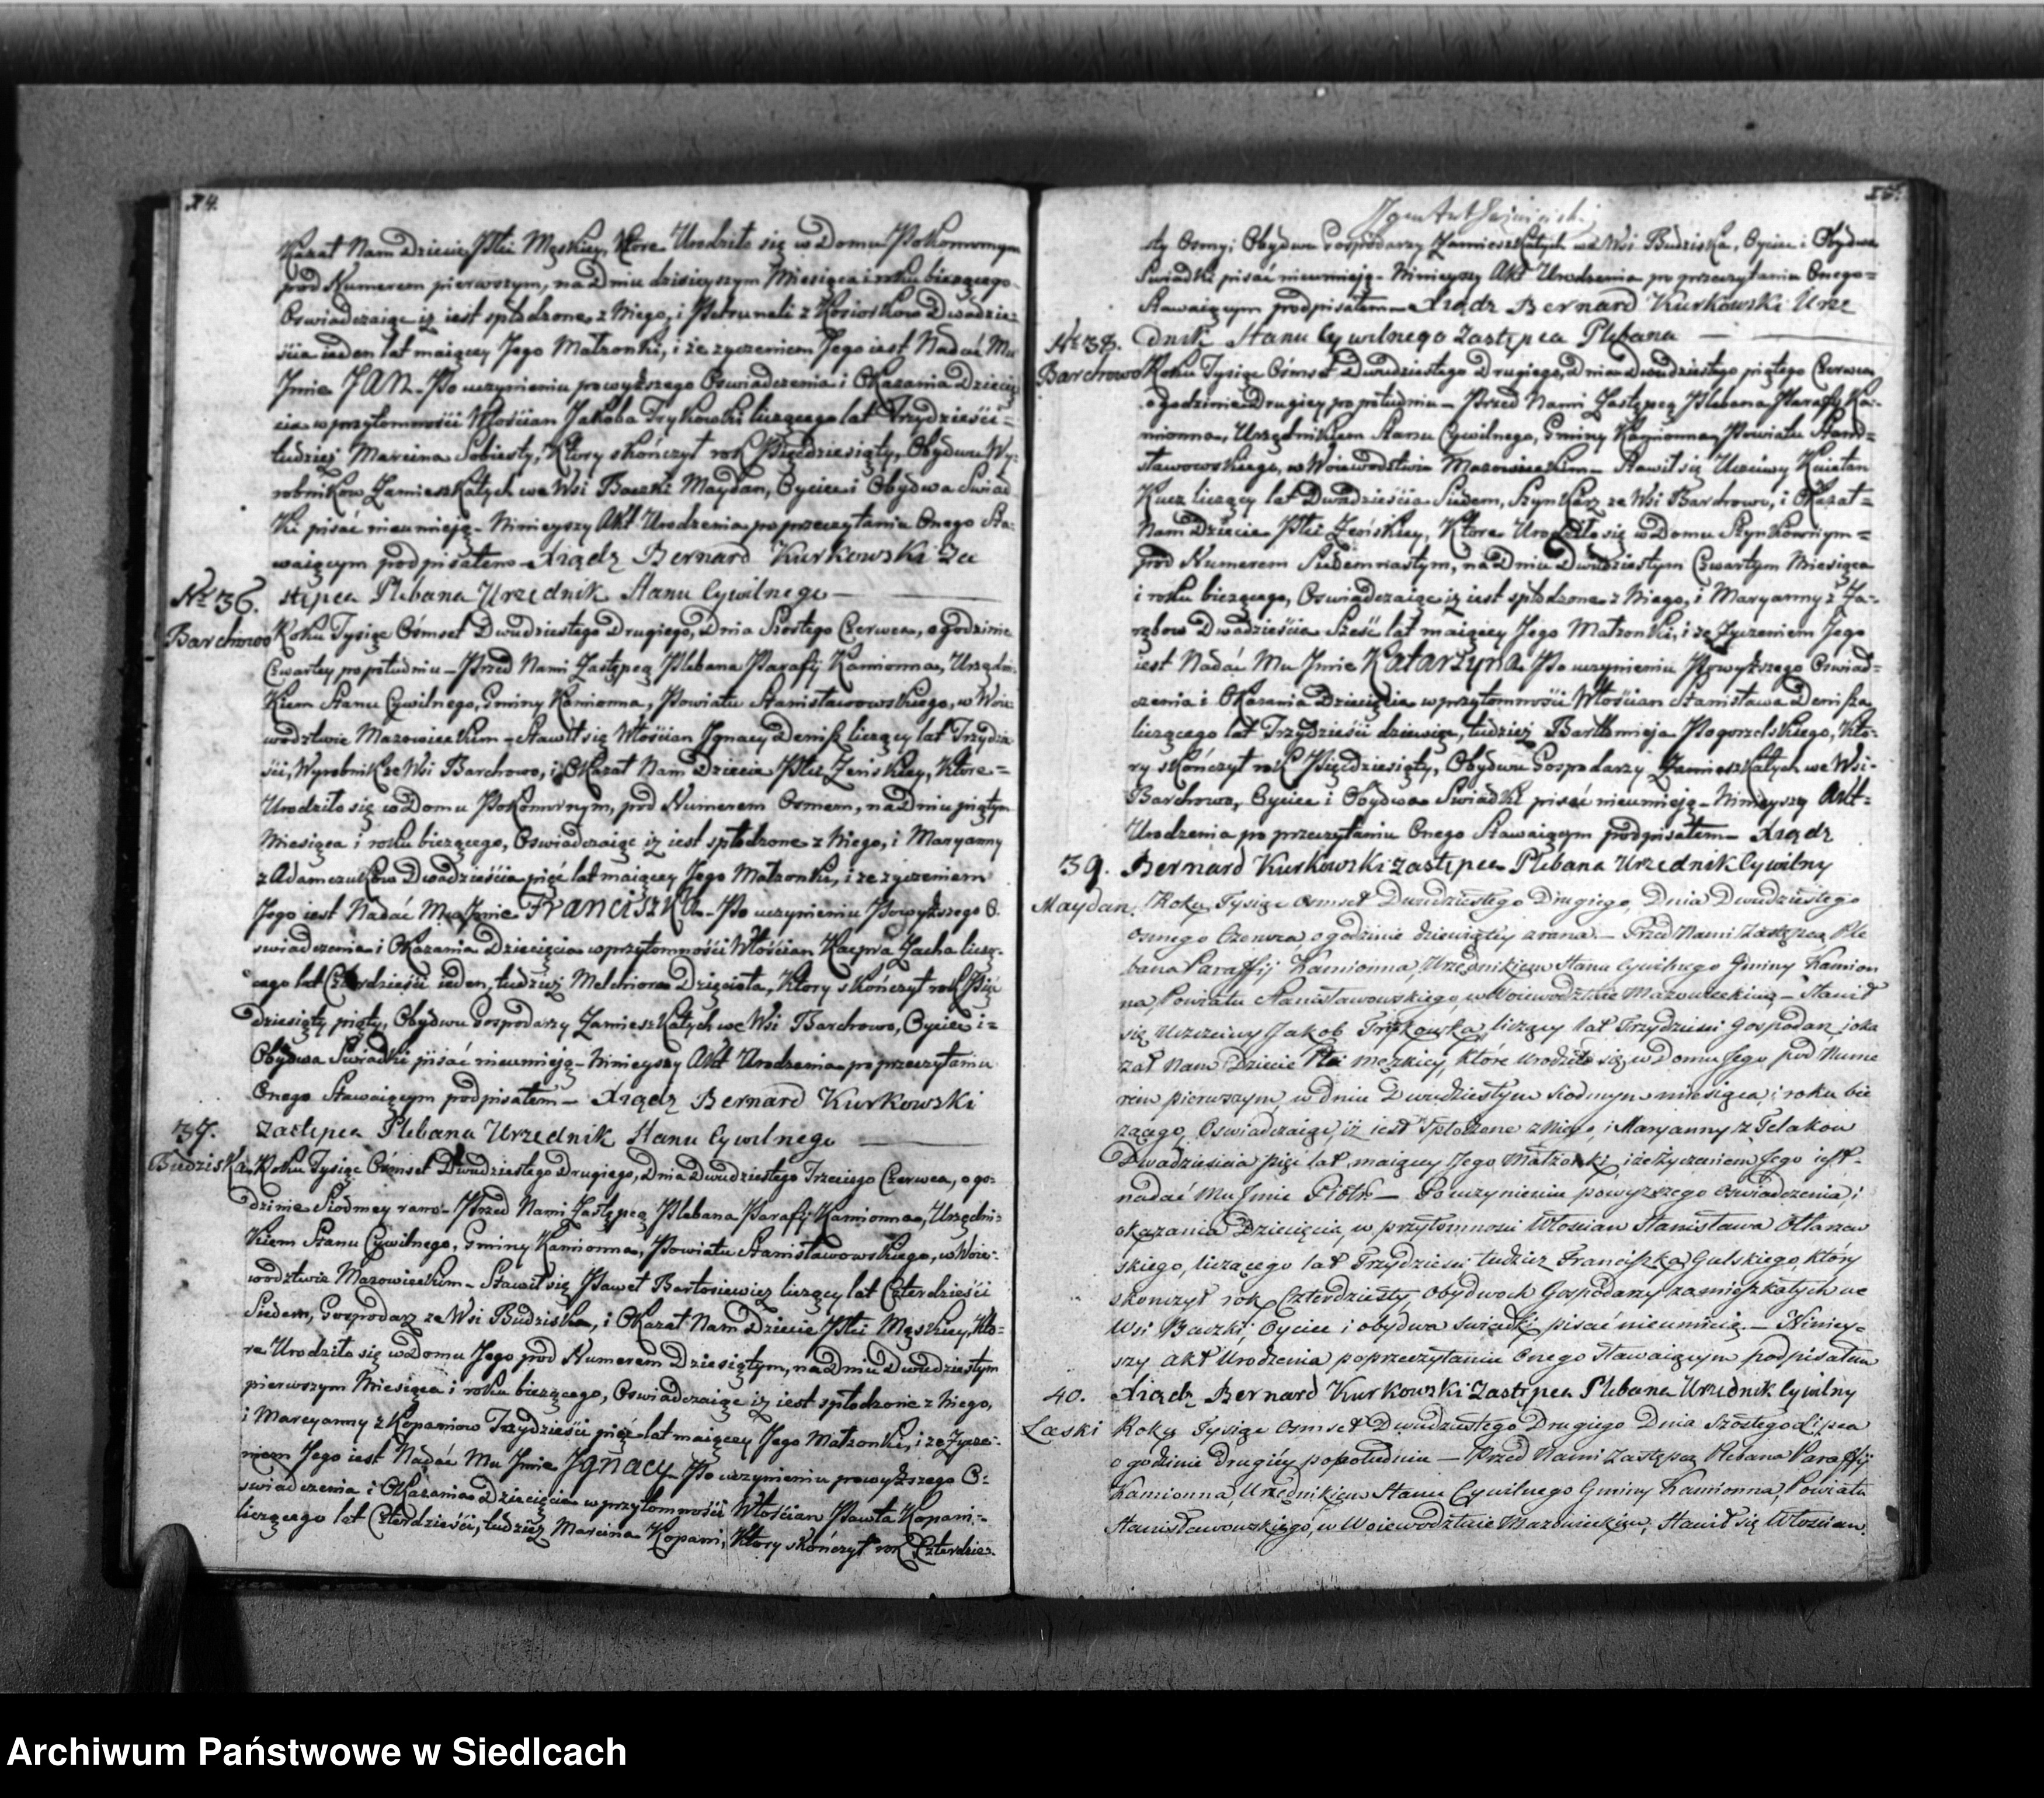 24.
Kazał Nam Dziecię Płci Męskiey, Ktore Urodziło się w Domu Pokomornym
pod Numerem pierwszym, na Dniu dzisieyszym Miesiąca i roku bieżącego
Oswiadczaiąc iż iest spłodzone z Niego, i Petruneli z Kosiorkow Dwadzie=
ścia ieden lat maiącey Jego Małzonki, i że zyczeniem Jego iest Nadać Mu
Jmie JAN. Po uczynieniu powyższego Oswiadczenia i Okazania Dzieci=
cia w przytomności Włościan Jakoba Trykowski liczącego lat Trzydzieści=
tudzież Marcina Sobiesty, Ktory skończył rok Pięćdziesiąty, Obydwu Wy=
robnikow Zamieszkałych we Wsi Baczki Maydan, Oyciec i Obydwa Swiad
Ki pisać nieumieją. Ninieyszy Akt Urodzenia po przeczytaniu Onego Sta=
waiącym podpisałem Xiądz Bernard Kurkowski Za
stępca Plebana Urzędnik Stanu Cywilnego
Nr 36.
Barchowo
Roku Tysiąc Osmset Dwudziestego Drugiego, Dnia Szostego Czerwca, o godzinie
Czwartey po południu – Przed Nami Zastępcą Plebana Parafij Kamionna, Urzędni
Kiem Stanu Cywilnego, Gminy Kamionna, Powiatu Stanisławowskiego, w Woie
wodztwie Mazowieckim – Stawił się Włościan Jgnacy Denisz liczący lat Trzydzie
ści, Wyrobnik ze Wsi Barchowo, i Okazał Nam Dziecie Płci Zeńskiey, Ktore =
Urodziło się w Domu Pokomornym, pod Numerem Osmem, na Dniu piątym
Miesiąca i roku bieżącego, Oswiadczaiąc iż iest spłodzone z Niego, i Maryanny
z Adamczukow Dwadzieścia pięć lat maiącey Jego Małzonki, i ze zyczeniem
Jego iest Nadać Mu Jmie Franciszka. Po uczynieniu Powyższego O.
swiadczenia i Okazania Dziecięcia w przytomności Włościan Kacpra Zacha liczą.
cego lat Czterdzieści ieden, tudzież Melchiora Dzięcioła, Ktory skończył rok Pięć
dziesiąty piąty, Obydwu Gospodarzy Zamieszkałych we Wsi Barchowo, Oyciec i=
Obydwa Swiadki pisać nieumieją – Ninieyszy Akt Urodzenia po przeczytaniu
Onego Stawaiącym podpisałem – Xiądz Bernard Kurkowski
Zastępca Plebana Urzędnik Stanu Cywilnego
37.
Budziska
Roku Tysiąc Osmset Dwudziestego Drugiego, Dnia Dwudziestego Trzeciego Czerwca, o go=
dzinie Siodmey rano – Przed Nami Zastępcą Plebana Parafij Kamionna, Urzędni=
Kiem Stanu Cywilnego, Gminy Kamionna, Powiatu Stanisławowskiego, w Woie=
wodztwie Mazowieckim – Stawił się Paweł Bartosiewicz liczący lat Czterdzieści
Siedem, Gospodarz ze Wsi Budziska, i Okazał Nam Dziecie Płci Męskiey, Kto=
re Urodziło się w Domu Jego pod Numerem Dziesiątym, na Dniu Dwudziestym
pierwszym Miesiąca i roku bieżącego, Oswiadczaiąc iż iest spłodzone z Niego,
i Maryanny z Kopaniow Trzydzieści pięć lat maiącey Jego Małzonki, i ze Zycze=
niem Jego iest Nadać Mu Jmie Jgnacy. Po uczynieniu powyższego O=
swiadczenia i Okazania Dziecięcia w przytomności Włościan Pawła Kopani=
liczącego lat Czterdzieści, tudzież Marcina Kopani, Ktory skończył rok Czterdzie=
25.
sty Osmy; Obydwu Gospodarzy Zamieszkałych we Wsi Budziska, Oyciec i Obydwa
Swiadki pisać nieumieją – Ninieyszy Akt Urodzenia po przeczytaniu Onego=
Stawaiącym podpisałem – Xiądz Bernard Kurkowski Urzę
dnik Stanu Cywilnego Zastępca Plebana
Nr 38.
Barchowo
Roku Tysiąc Osmset Dwudziestego Drugiego, Dnia Dwudziestego piątego Czerwca
o godzinie Drugiey po południu – Przed Nami Zastępcą Plebana Parafij Ka=
mionna, Urzędnikiem Stanu Cywilnego, Gminy Kamionna, Powiatu Stani=
sławowskiego, w Woiewodztwie Mazowieckim – Stawił się Uczciwy Kaietan
Kucz liczący lat Dwadzieścia Siedem, Szynkarz ze Wsi Barchowo, i Okazał=
Nam Dziecie Płci Zeńskiey, Ktore Urodziło się w Domu Szynkownym =
pod Numerem Siedemnastym, na Dniu Dwudziestym Czwartym Miesiąca
i roku bieżącego, Oswiadczaiąc iż iest spłodzone z Niego, i Maryanny z Za=
rębow Dwadzieścia Sześć lat maiącey Jego Małzonki, i ze Zyczeniem Jego
iest Nadać Mu Jmie Katarzyna. Po uczynieniu Powyższego Oswiad=
czenia i Okazania Dziecięcia w przytomności Włościan Stanisława Denisza
liczącego lat Trzydzieści dziewięć, tudzież Bartłomieja Pogorzelskiego, Kto=
ry skończył rok Pięćdziesiąty, Obydwu Gospodarzy Zamieszkałych we Wsi=
Barchowo, Oyciec i Obydwa Swiadki pisać nieumieją – Ninieyszy Akt=
Urodzenia po przeczytaniu Onego Stawaiącym podpisałem – Xiądz
Bernard Kurkowski Zastępca Plebana Urzędnik Cywilny
39.
Maydan.
Roku Tysiąc Osmset Dwudziestego Drugiego, Dnia Dwudziestego
osmego Czerwca, o godzinie dziewiątey zrana. – Przed Nami Zastępcą Ple
bana Paraffij Kamionna, Urzędnikiem Stanu Cywilnego Gminy Kamion
na, Powiatu Stanisławowskiego, w Woiewodztwie Mazowieckim, – Stawił
się Uczciwy Jakob Trykowski, liczący lat Trzydzieści Gospodarz, i oka
zał Nam Dziecie Płci męzkiey, które urodziło się, w Domu Jego pod Nume
rem pierwszym, w dniu Dwudziestym siodmym miesiąca i roku bie
żącego, Oswiadczaiąc, iż iest spłodzone z Niego, i Maryanny z Telakow
Dwadzieścia pięć lat, maiącey Jego Małżonki, i że życzeniem Jego iest-
nadać Mu Jmie Piotr. – Po uczynieniu powyższego oswiadczenia, i
okazania Dziecięcia, w przytomnosci Włoscian Stanisława Ołtarzew
skiego, liczącego lat Trzydziesci tudzież Franciszka Gulskiego, który
skonczył rok, Czterdziesty, obydwóch Gospodarzy zamieszkałych we
Wsi Baczki, Oyciec i obydwa swiadki, pisać nieumieią. – Niniey=
szy Akt Urodzenia po przeczytaniu Onego stawaiącym podpisałem
Xiądz Bernard Kurkowski Zastępca Plebana Urzędnik Cywilny
40.
Laski
Roku Tysiąc Osmset Dwudziestego Drugiego Dnia Szostego Lipca
o godzinie drugiéy popołudniu – Przed Nami Zastępcą Plebana Paraffij
Kamionna, Urzędnikiem Stanu Cywilnego Gminy Kamionna, Powiatu
Stanisławowskiego, w Woiewodztwie Mazowieckim, Stawił się Włoscian.
Archiwum Państwowe w Siedlcach